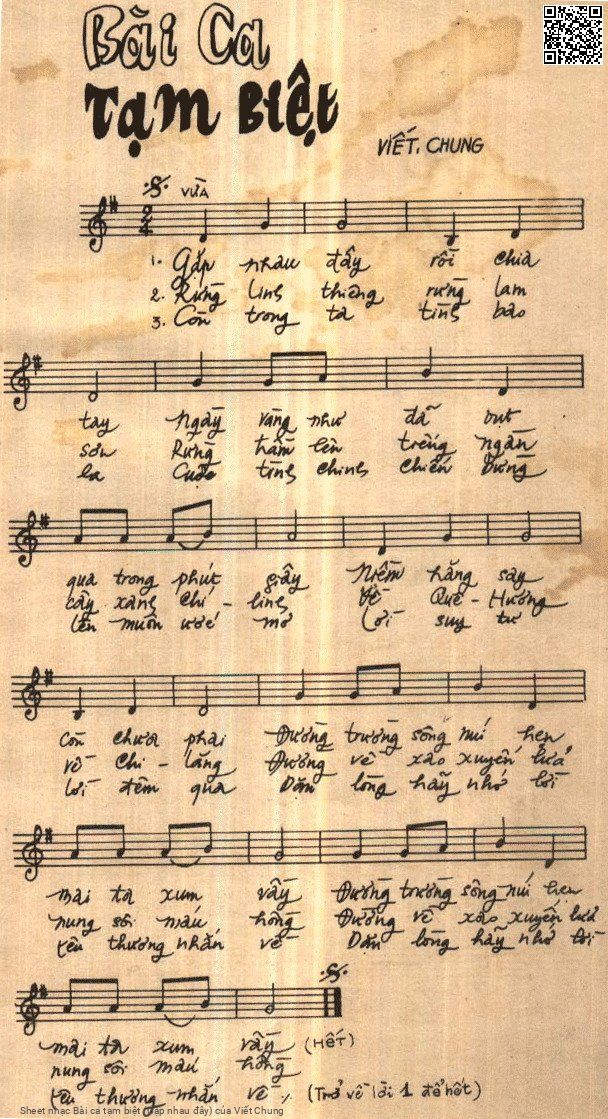 Bài Ca
Tạm Biệt
VIẾT CHUNG
VỪA
2
4
1. Gặp nhau đây rồi chia
2. Rừng linh thiêng rừng lam
3. Còn trong ta tình bao
tay Ngày vàng như đã vụt
sơn Rừng trầm lên tiếng ngàn
la Cuộc tình chinh chiến dừng
qua trong phút giây Niềm hăng say
cây xanh Chí - linh Về Quê - Hương
lên muôn ước mơ Lời suy tư
còn chưa phai Đường trường sông núi hẹn
về Chi - lăng Đường về xao xuyến lửa
lời đêm qua Dăn lòng hãy nhớ lời
mai ta xum vầy Đường trường sông núi hẹn
nung sôi máu hồng Đường về xao xuyến lửa
yêu thương nhắn về Dăn lòng hãy nhớ lời
mai ta xum vầy (HẾT)
nung sôi máu hồng
yêu thương nhắn về (Trở về lời 1 để hết)
Sheet nhạc Bài ca tạm biệt (Gặp nhau đây) của Viết Chung